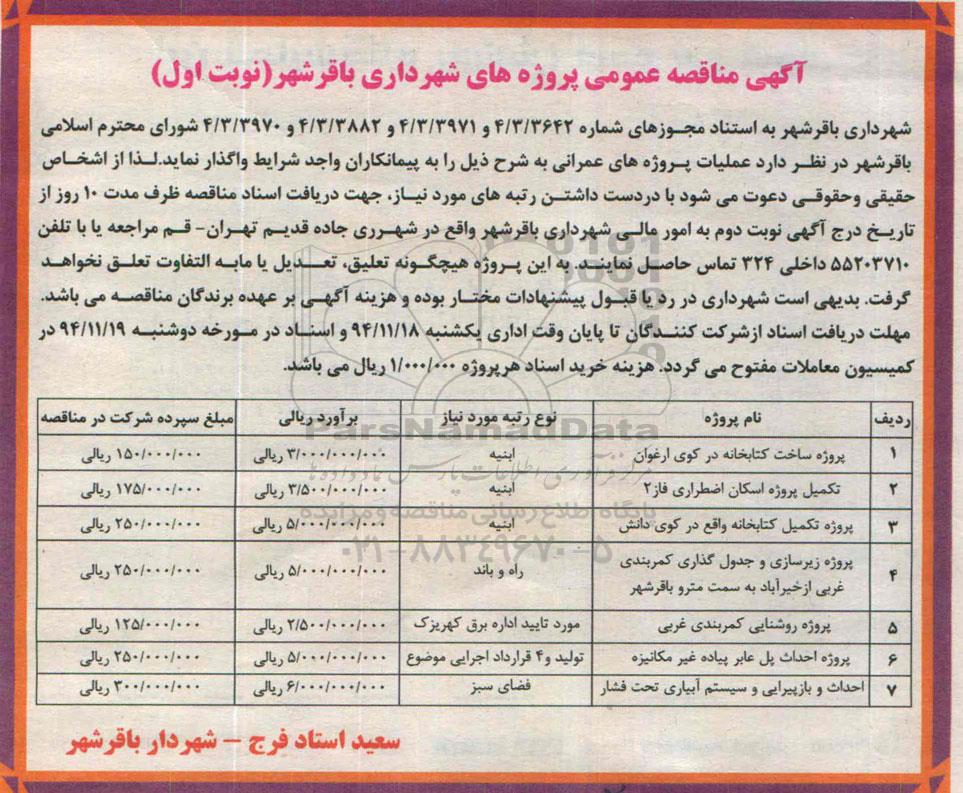 آگهی مناقصه عمومی پروژه های شهرداری باقرشهر(نوبت اول)
شهرداری باقرشهر به استناد مجوزهای شماره ۴/۳/۳۶۴۲ و ۴/۳/۳۹۷۱ و ۴/۳/۳۸۸۲ و ۴/۳/۳۹۷۰ شورای محترم اسلامی
باقرشهر در نظر دارد عملیات پروژه های عمرانی به شرح ذیل را به پیمانکاران واجد شرایط واگذار نماید.لذا از اشخاص
حقیقی وحقوقی دعوت می شود با دردست داشتن رتبه های مورد نیاز، جهت دریافت اسناد مناقصه ظرف مدت ۱۰ روز از
تاریخ درج آگهی نوبت دوم به امور مالی شهرداری باقرشهر واقع در شهرری جاده قدیم تهران- قم مراجعه یا با تلفن
۵۵۲۰۳۷۱۰ داخلی ۳۲۴ تماس حاصل نمایند. به این پروژه هیچگونه تعلیق، تعدیل یا مابه التفاوت تعلق نخواهد
گرفت. بدیهی است شهرداری در رد یا قبول پیشنهادات مختار بوده و هزینه آگهی بر عهده برندگان مناقصه می باشد.
مهلت دریافت اسناد ازشرکت کنندگان تا پایان وقت اداری یکشنبه ۹۴/۱۱/۱۸ و اسناد در مورخه دوشنبه ۹۴/۱۱/۱۹ در
کمیسیون معاملات مفتوح می گردد. هزینه خرید اسناد هرپروژه ۱/۰۰۰/۰۰۰ ریال می باشد.
ردیف نام پروژه نوع رتبه مورد نیاز برآورد ریالی مبلغ سپرده شرکت در مناقصه
۱ پروژه ساخت کتابخانه در کوی ارغوان ابنیه ۳/۰۰۰/۰۰۰/۰۰۰ ریالی ۱۵۰/۰۰۰/۰۰۰ ریالی
۲ تکمیل پروژه اسکان اضطراری فاز۲ ابنیه ۳/۵۰۰/۰۰۰/۰۰۰ ریالی ۱۷۵/۰۰۰/۰۰۰ ریالی
۳ پروژه تکمیل کتابخانه واقع در کوی دانش ابنیه ۵/۰۰۰/۰۰۰/۰۰۰ ریالی ۲۵۰/۰۰۰/۰۰۰ ریالی
۴ پروژه زیرسازی و جدول گذاری کمربندی
غربی ازخیرآباد به سمت مترو باقرشهر راه و باند ۵/۰۰۰/۰۰۰/۰۰۰ ریالی ۲۵۰/۰۰۰/۰۰۰ ریالی
۵ پروژه روشنایی کمربندی غربی مورد تایید اداره برق کهریزک ۲/۵۰۰/۰۰۰/۰۰۰ ریالی ۱۲۵/۰۰۰/۰۰۰ ریالی
۶ پروژه احداث پل عابر پیاده غیر مکانیزه تولید و۴ قرارداد اجرایی موضوع ۵/۰۰۰/۰۰۰/۰۰۰ ریالی ۲۵۰/۰۰۰/۰۰۰ ریالی
۷ احداث و بازپیرایی و سیستم آبیاری تحت فشار فضای سبز ۶/۰۰۰/۰۰۰/۰۰۰ ریالی ۳۰۰/۰۰۰/۰۰۰ ریالی
سعید استاد فرج – شهردار باقرشهر
ParsNamadData
مرکز فرآوری اطلاعات پارس نماد داده‌ها
پایگاه اطلاع رسانی مناقصه و مزایده
۰۲۱-۸۸۳۴۹۶۷۰-۵